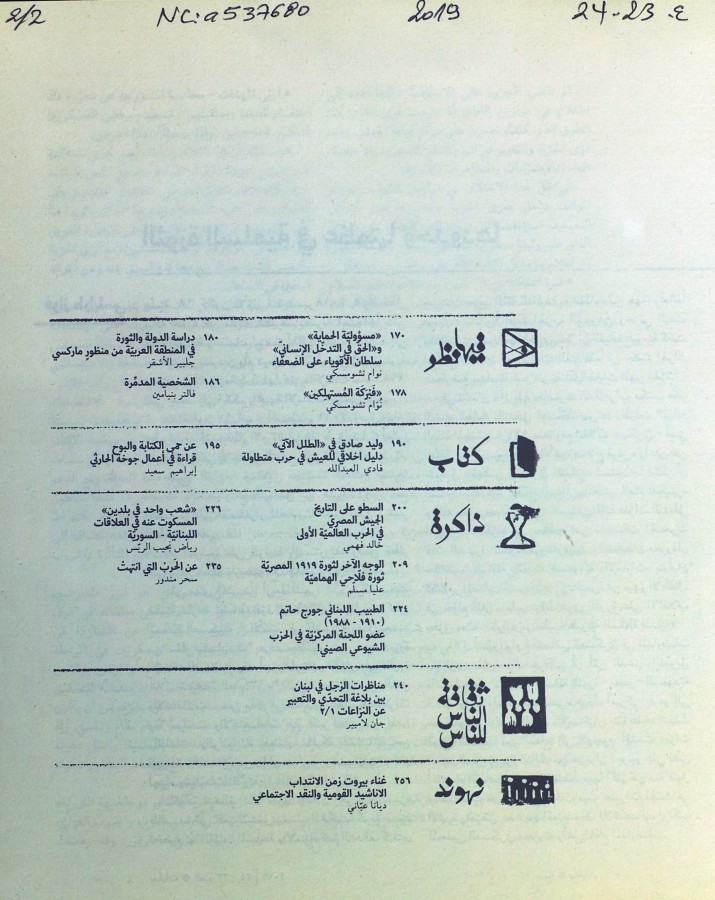 2/2 NC:a537680 2019 ع 23-24
فيها نظر
١٧٠ «مسؤوليّة الحماية»
و«الحقّ في التدخّل الإنسانيّ»
سلطان الأقوياء على الضعفاء
نوام تشومسكي
١٧٨ «فَبْرَكة المُستهلِكين»
نُوَام تشومسكي
١٨٠ دراسة الدولة والثورة
في المنطقة العربيّة من منظورٍ ماركسي
جلبير الأشقر
١٨٦ الشخصية المدمِّرة
فالتر بنيامين
كتاب
١٩٠ وليد صادق في «الطلل الآتي»
دليل اخلاقي للعيش في حرب متطاولة
فادي العبدالله
١٩٥ عن حمى الكتابة والبوح
قراءة في أعمال جوخة الحارثي
إبراهيم سعيد
ذاكرة
٢٠٠ السطو على التاريخ
الجيش المصريّ
في الحرب العالميّة الأولى
خالد فهمي
٢٠٩ الوجه الآخر لثورة ١٩١٩ المصريّة
ثورة فلّاحي الهماميّة
عليا مسلم
٢٢٤ الطبيب اللبناني جورج حاتم
(١٩١٠ - ١٩٨٨)
عضو اللجنة المركزيّة في الحزب
الشيوعي الصيني!
٢٢٦ «شعب واحد في بلدين»
المسكوت عنه في العلاقات
اللبنانيّة - السوريّة
رياض نجيب الريّس
٢٣٥ عن الحربْ التي انتهتْ
سحر مندور
ثقافة
الناس
للناس
٢٤٠ مناظرات الزجل في لبنان
بين بلاغة التحدّي والتعبير
عن النزاعات ٢/١
جان لامبير
نهوند
٢٥٦ غناء بيروت زمن الانتداب
الاناشيد القومية والنقد الاجتماعي
ديانا عبّاني